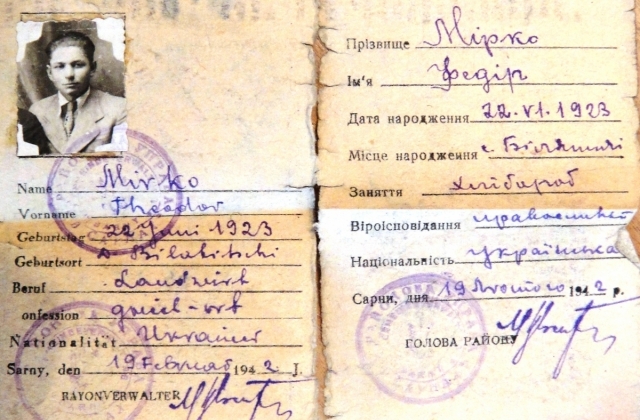 Name Mirko
Vorname Theodor
Geburtstag 22 Juni 1923
Geburtsort
Beruf Landwirt
onfession griech-ort
Nationalität Ukrainer
Sarny, den 19 Februar 1942 J.
RAYONVERWALTER
Прізвище Мірко
Ім'я Федір
Дата народження 22.VI.1923
Місце народження с.
Заняття Хлібороб
Віроісповідання православний
Національність українська
Сарни, дня 19 Лютого 1942 р.
ГОЛОВА РАЙОНУ